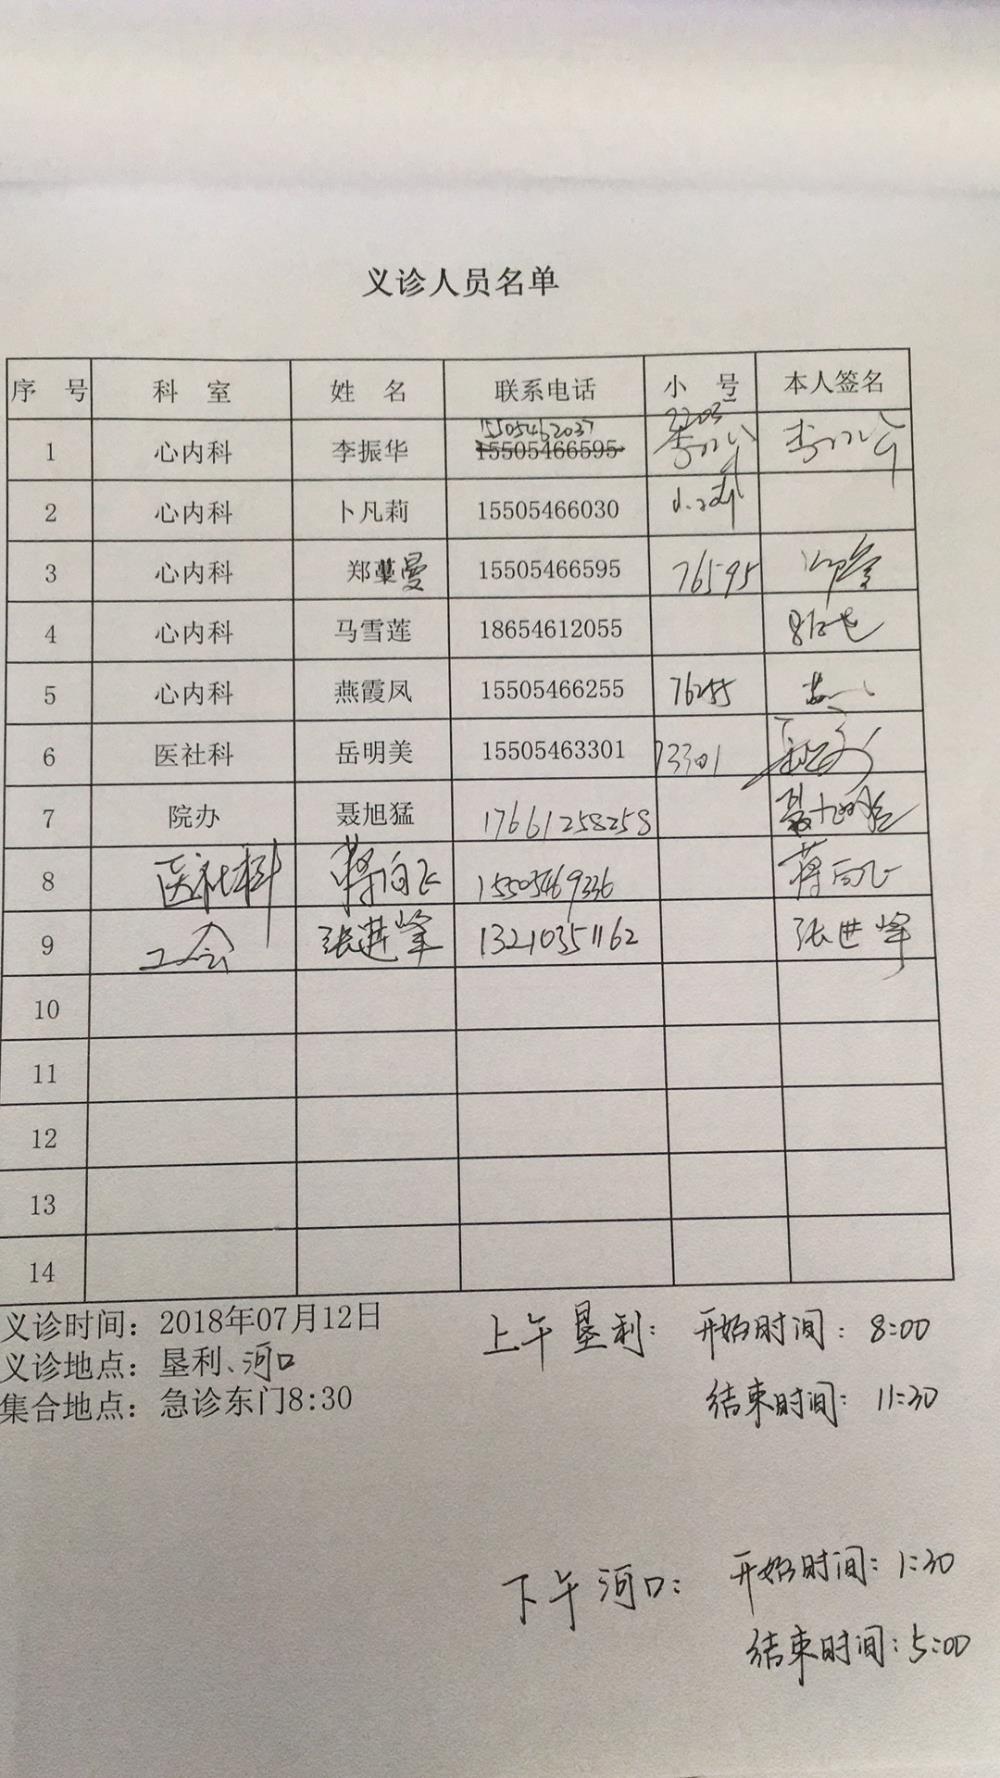 义诊人员名单
序 号 科 室 姓 名 联系电话 小 号 本人签名
1 心内科 李振华 15505462037 15505466595
2 心内科 卜凡莉 15505466030
3 心内科 郑曼 15505466595 76595
4 心内科 马雪莲 18654612055
5 心内科 燕霞凤 15505466255 76255
6 医社科 岳明美 15505463301 73301
7 院办 聂旭猛 17661258258
8 医社科 蒋向飞 15505469336 蒋向飞
9 工会 张进峰 13210351162 张进峰
10
11
12
13
14
义诊时间：2018年07月12日
义诊地点：垦利、河口
集合地点：急诊东门8:30
上午垦利： 开始时间：8:00
结束时间：11:30
下午河口： 开始时间：1:30
结束时间：5:00